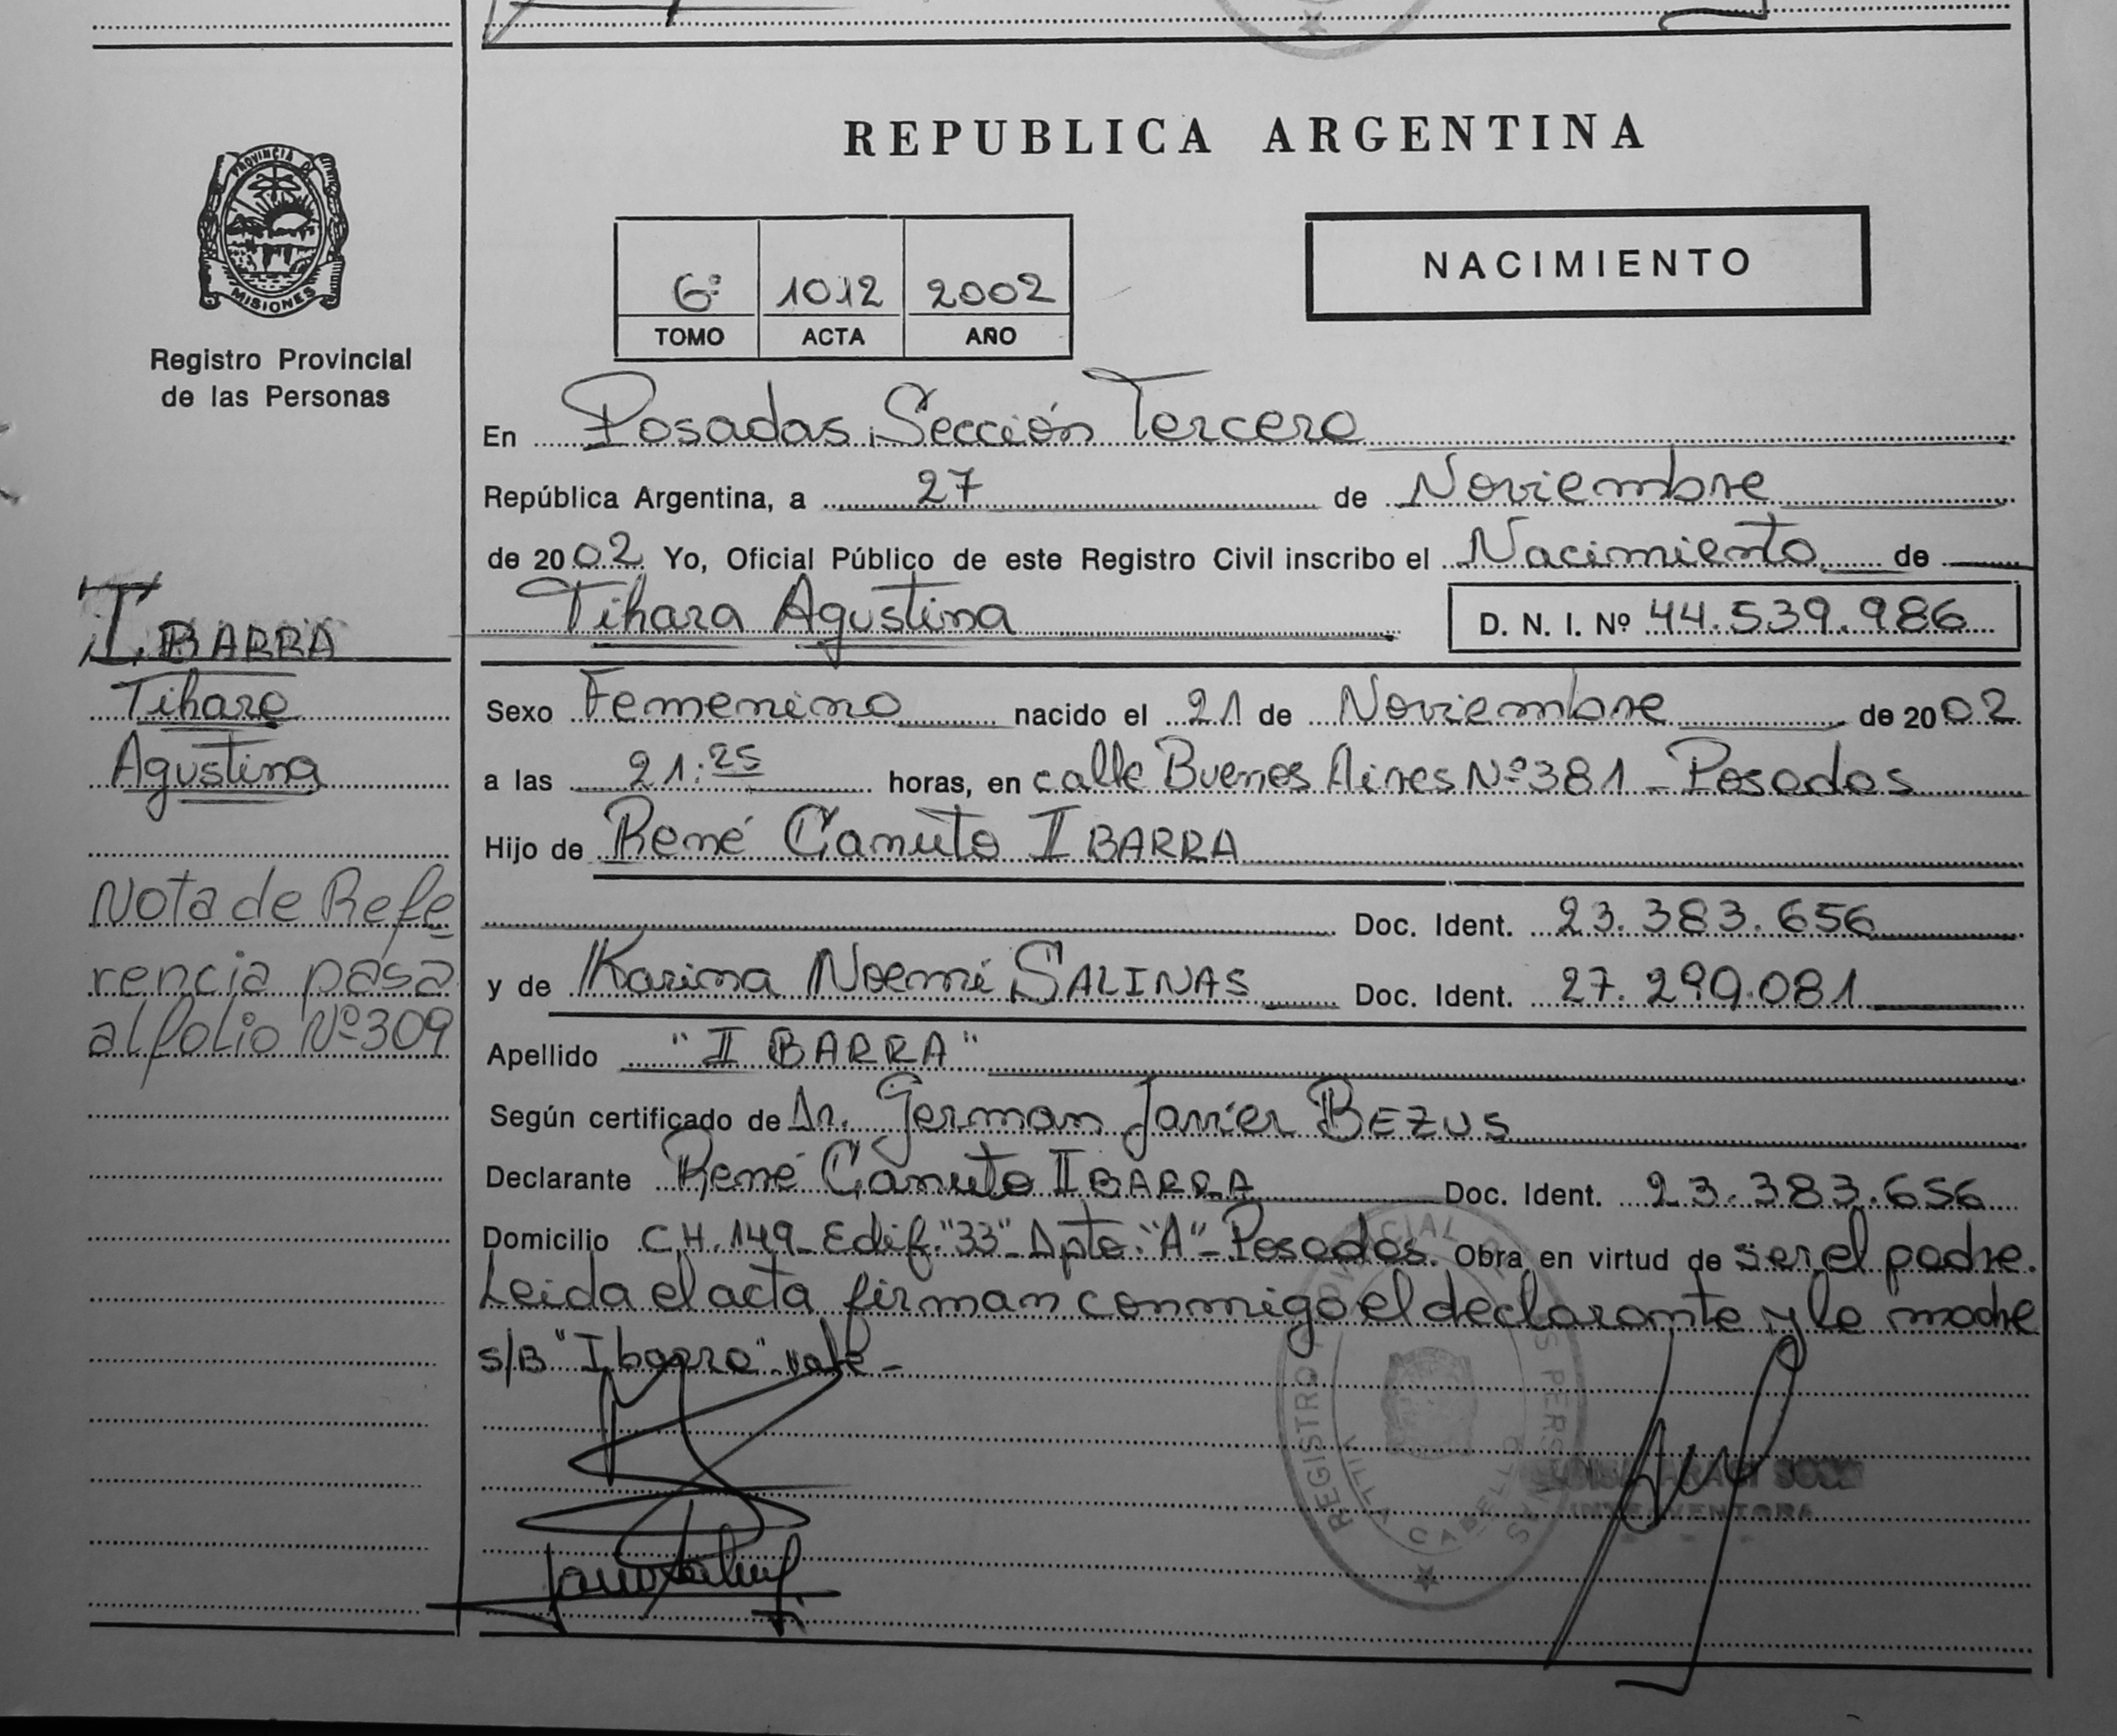 REPUBLICA ARGENTINA
PROVINCIA DE
MISIONES
Registro Provincial
de las Personas
6º 1012 2002
TOMO ACTA AÑO
NACIMIENTO
En Posadas, Sección Tercera
República Argentina, a 27 de Noviembre
de 2002 Yo, Oficial Público de este Registro Civil inscribo el Nacimiento de
Tihara Agustina D. N. I. Nº 44.539.986
IBARRA
Tihara
Agustina
Sexo Femenino nacido el 21 de Noviembre de 2002
a las 21:25 horas, en calle Buenos Aires Nº 381 - Posadas
Hijo de René Canuto IBARRA
Doc. Ident. 23.383.656
y de Karina Noemí SALINAS Doc. Ident. 27.290.081
Nota de Refe
rencia pasa
al folio Nº 309
Apellido "IBARRA"
Según certificado de Dr. German Javier BEZUS
Declarante René Canuto IBARRA Doc. Ident. 23.383.656
Domicilio CH. 149 - Edif. "33" - Dpto. "A" - Posadas. Obra en virtud de ser el padre.
Leida el acta firman conmigo el declarante y la madre
s/B "Ibarra" vale -
REGISTRO CIAL PERS
CABELLO
INTERVENTORA